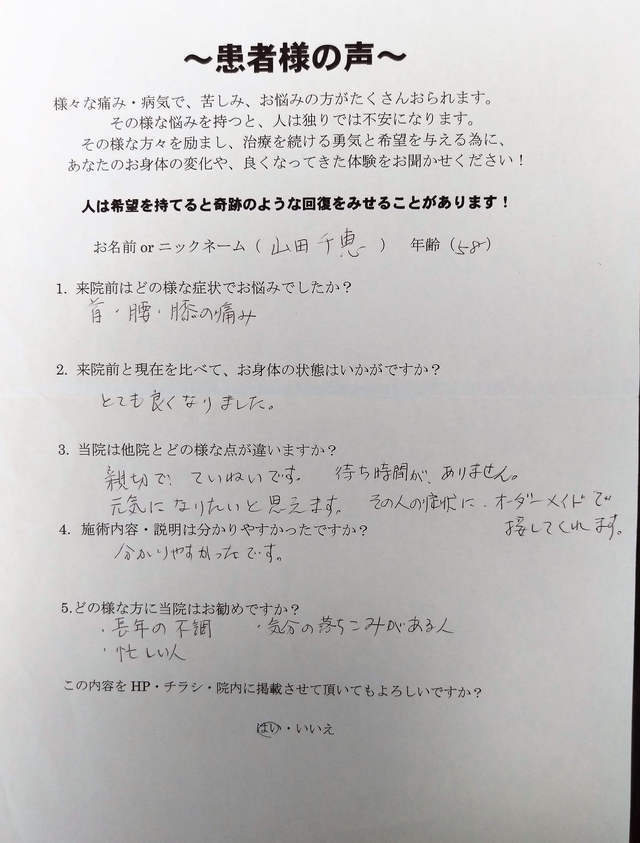 ～患者様の声～
様々な痛み・病気で、苦しみ、お悩みの方がたくさんおられます。
その様な悩みを持つと、人は独りでは不安になります。
その様な方々を励まし、治療を続ける勇気と希望を与える為に、
あなたのお身体の変化や、良くなってきた体験をお聞かせください！
人は希望を持てると奇跡のような回復をみせることがあります！
お名前 or ニックネーム（ 山田 千恵 ） 年齢（58）
1. 来院前はどの様な症状でお悩みでしたか？
首・腰・膝の痛み
2. 来院前と現在を比べて、お身体の状態はいかがですか？
とても良くなりました。
3. 当院は他院とどの様な点が違いますか？
親切で、ていねいです。 待ち時間が、ありません。
元気になりたいと思えます。 その人の症状に・オーダーメイドで
接してくれます。
4. 施術内容・説明は分かりやすかったですか？
分かりやすかったです。
5.どの様な方に当院はお勧めですか？
・長年の不調 ・気分の落ちこみがある人
・忙しい人
この内容を HP・チラシ・院内に掲載させて頂いてもよろしいですか？
はい・いいえ